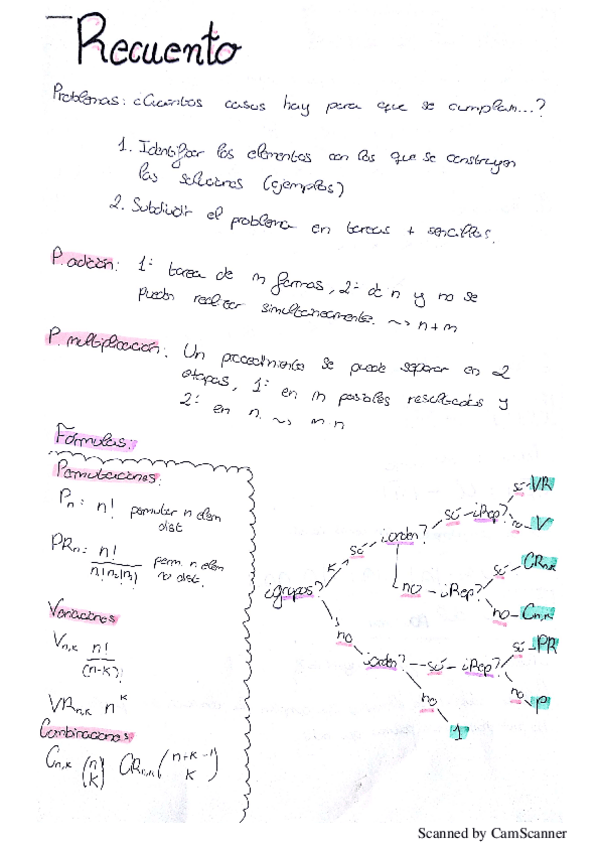 Recuento
Problemas: ¿Cuántos casos hay para que se cumplan...?
1. Identificar los elementos con los que se construyen
las soluciones (ejemplos)
2. Subdividir el problema en tareas + sencillas.
P. adición: 1ª tarea de m formas, 2ª de n y no se
pueden realizar simultaneamente. ~> n+m
P. multiplicación: Un procedimiento se puede separar en 2
etapas, 1ª en m posibles resultados y
2ª en n. ~> m n
Fórmulas:
Permutaciones:
Pn: n! permutar n elem
dist
PRn: n! / n1!n2!n3! perm. n elem
no dist.
Variaciones
Vn,k n! / (n-k)!
VRn,k n^k
Combinaciones
Cn,k (n k) CRn,k (n+k-1 k)
¿grupos?
sí
¿orden?
sí - ¿Rep?
sí - VR
no - V
no - ¿Rep?
sí - CRn,k
no - Cn,k
no
¿orden? -- sí - ¿Rep?
sí - PR
no - P
no
1
Scanned by CamScanner